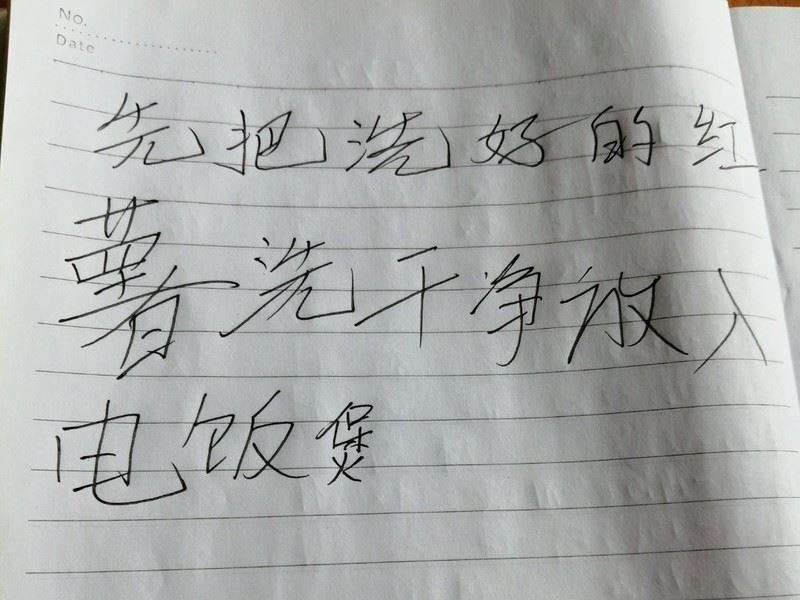 No.
Date
先把洗好的红
薯洗干净放入
电饭煲